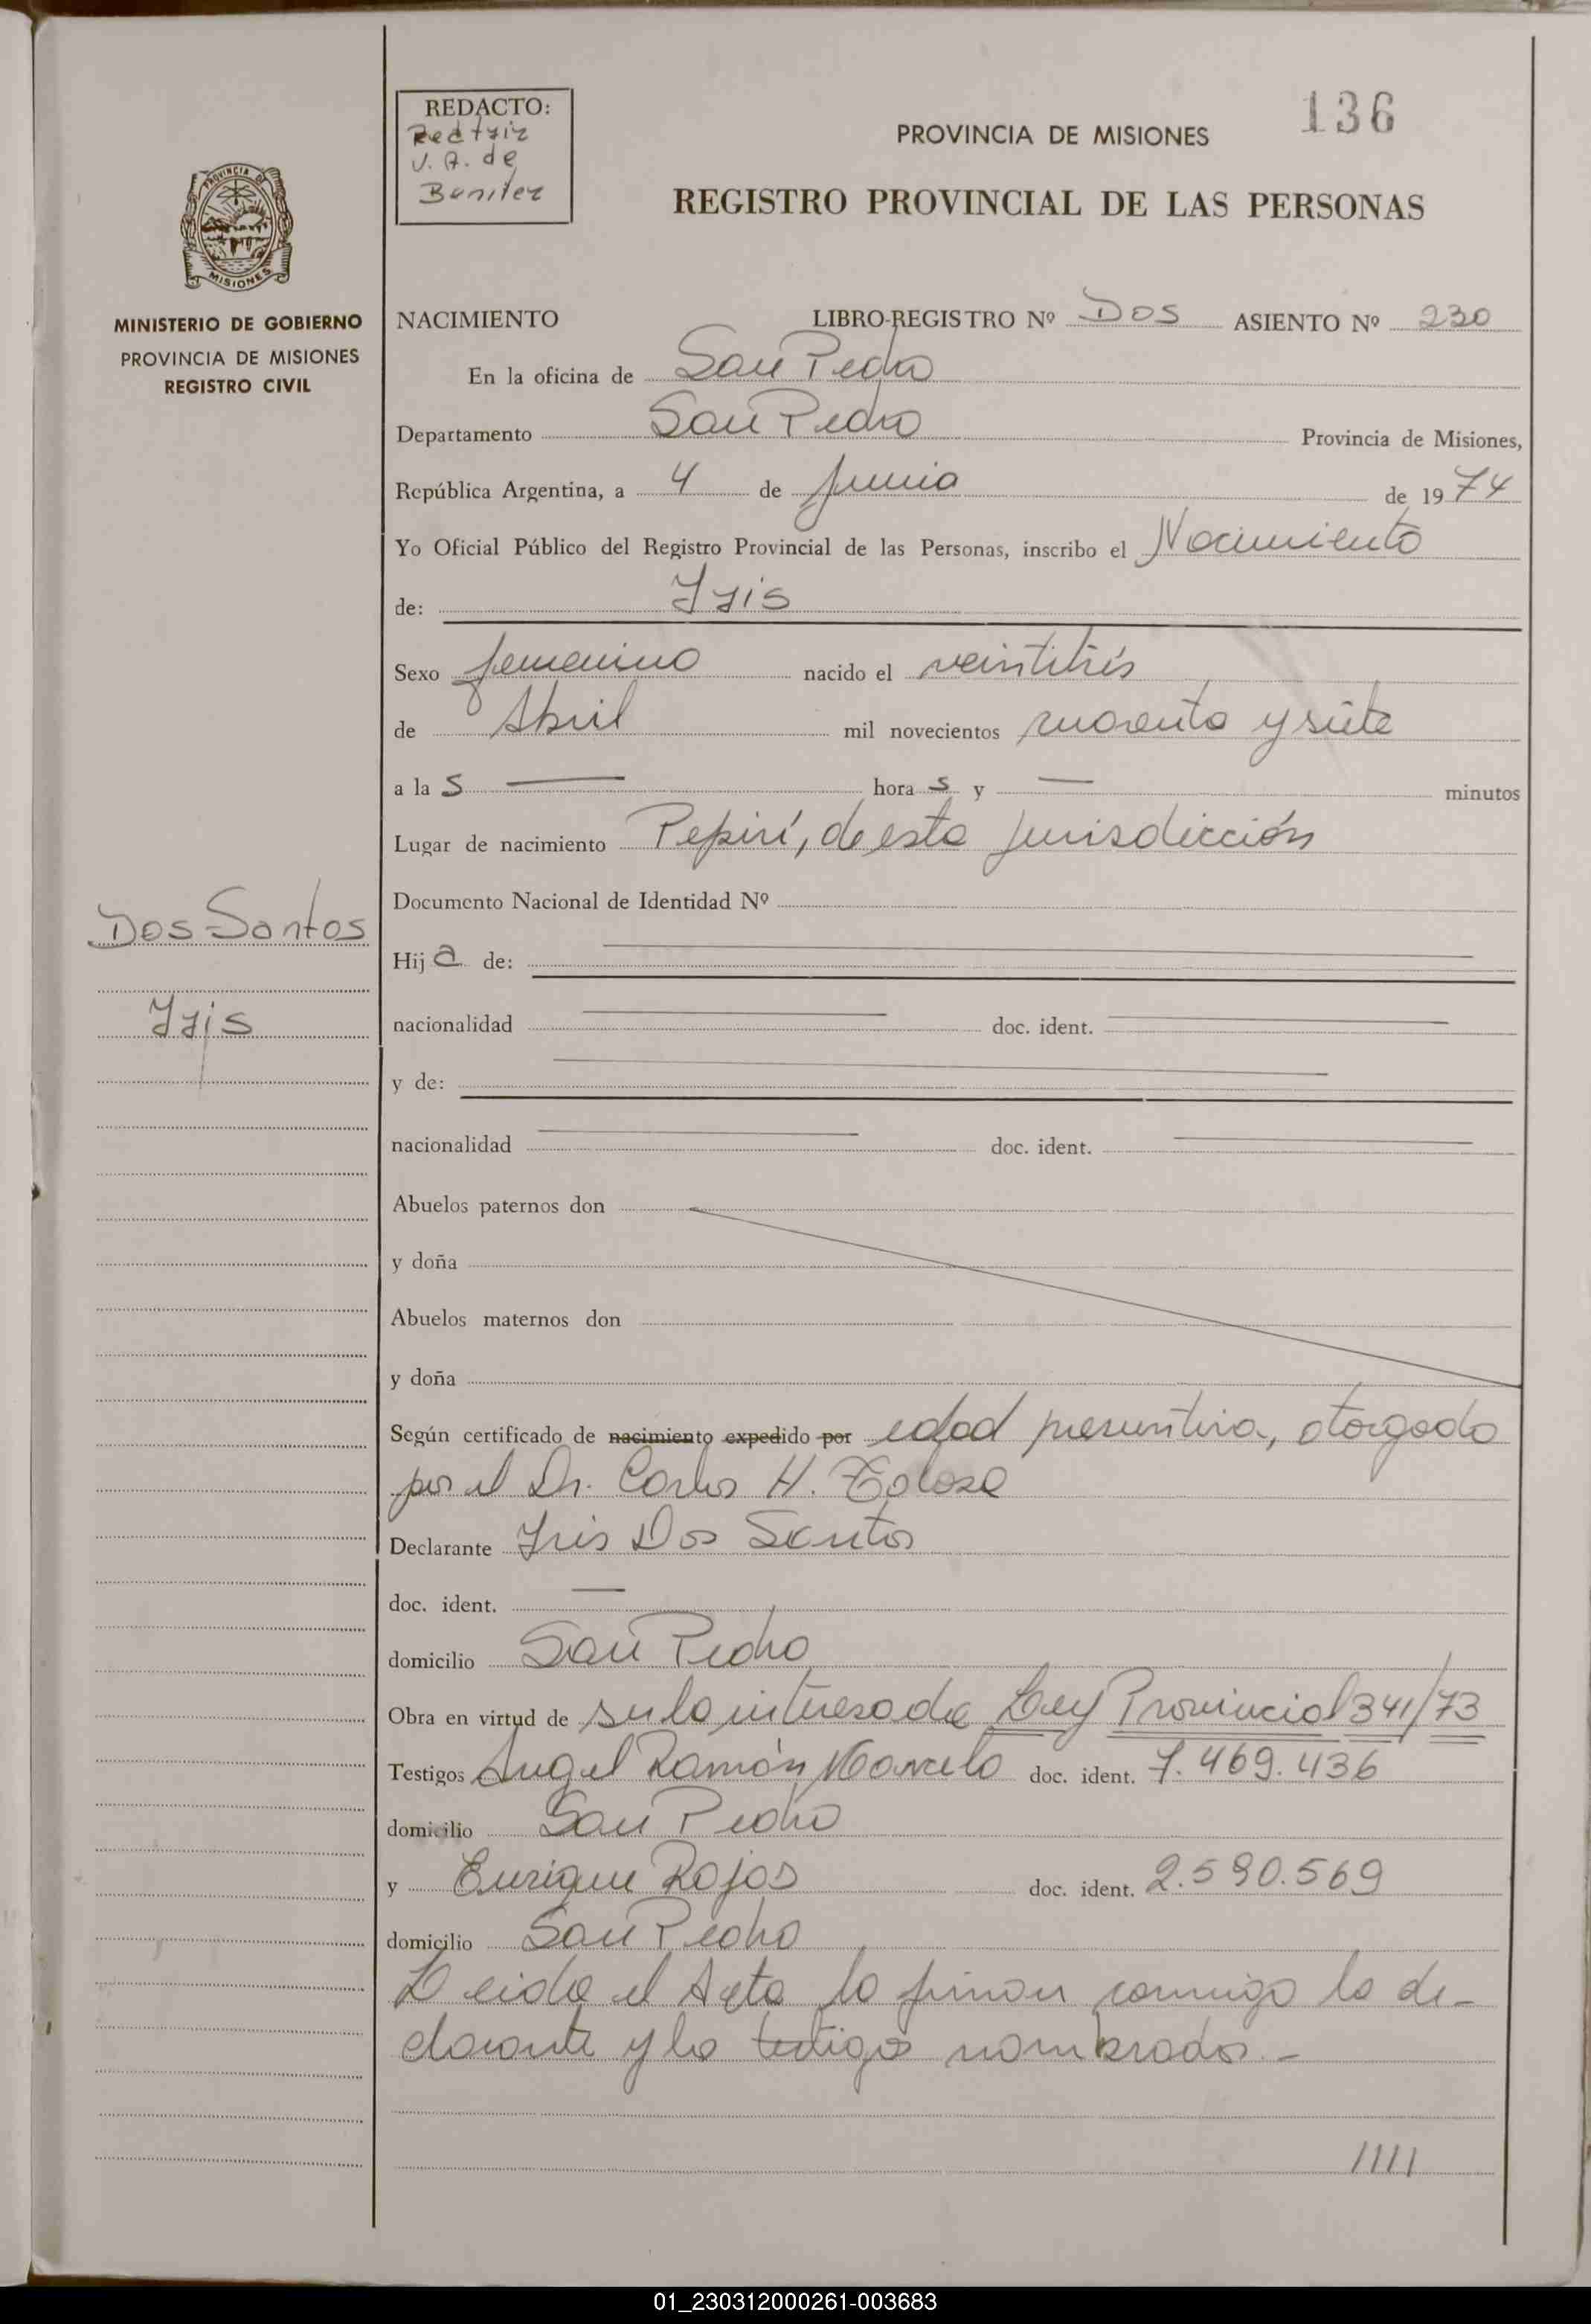 136
REDACTO:
Beatriz
V. A. de
Benitez
PROVINCIA DE MISIONES
REGISTRO PROVINCIAL DE LAS PERSONAS
PROVINCIA DE
MISIONES
MINISTERIO DE GOBIERNO
PROVINCIA DE MISIONES
REGISTRO CIVIL
NACIMIENTO LIBRO-REGISTRO Nº Dos ASIENTO Nº 230
En la oficina de San Pedro
Departamento San Pedro Provincia de Misiones,
República Argentina, a 4 de Junio de 1974
Yo Oficial Público del Registro Provincial de las Personas, inscribo el Nacimiento
de: Iris
Sexo femenino nacido el veintitrés
de Abril mil novecientos cuarenta y siete
a las — horas y — minutos
Lugar de nacimiento Pepirí, de esta Jurisdicción
Documento Nacional de Identidad Nº
Dos Santos
Iris
Hija de:
nacionalidad doc. ident.
y de:
nacionalidad doc. ident.
Abuelos paternos don
y doña
Abuelos maternos don
y doña
Según certificado de nacimiento expedido por edad presuntiva, otorgado
por el Dr. Carlos H. Tolosa
Declarante Iris Dos Santos
doc. ident. —
domicilio San Pedro
Obra en virtud de ser la interesada Ley Provincial 341/73
Testigos Angel Ramón Marcelo doc. ident. 7.469.436
domicilio San Pedro
y Enrique Rojas doc. ident. 2.590.569
domicilio San Pedro
Leida el Acta la firman conmigo la de-
clarante y los testigos nombrados.-
////
01_230312000261-003683